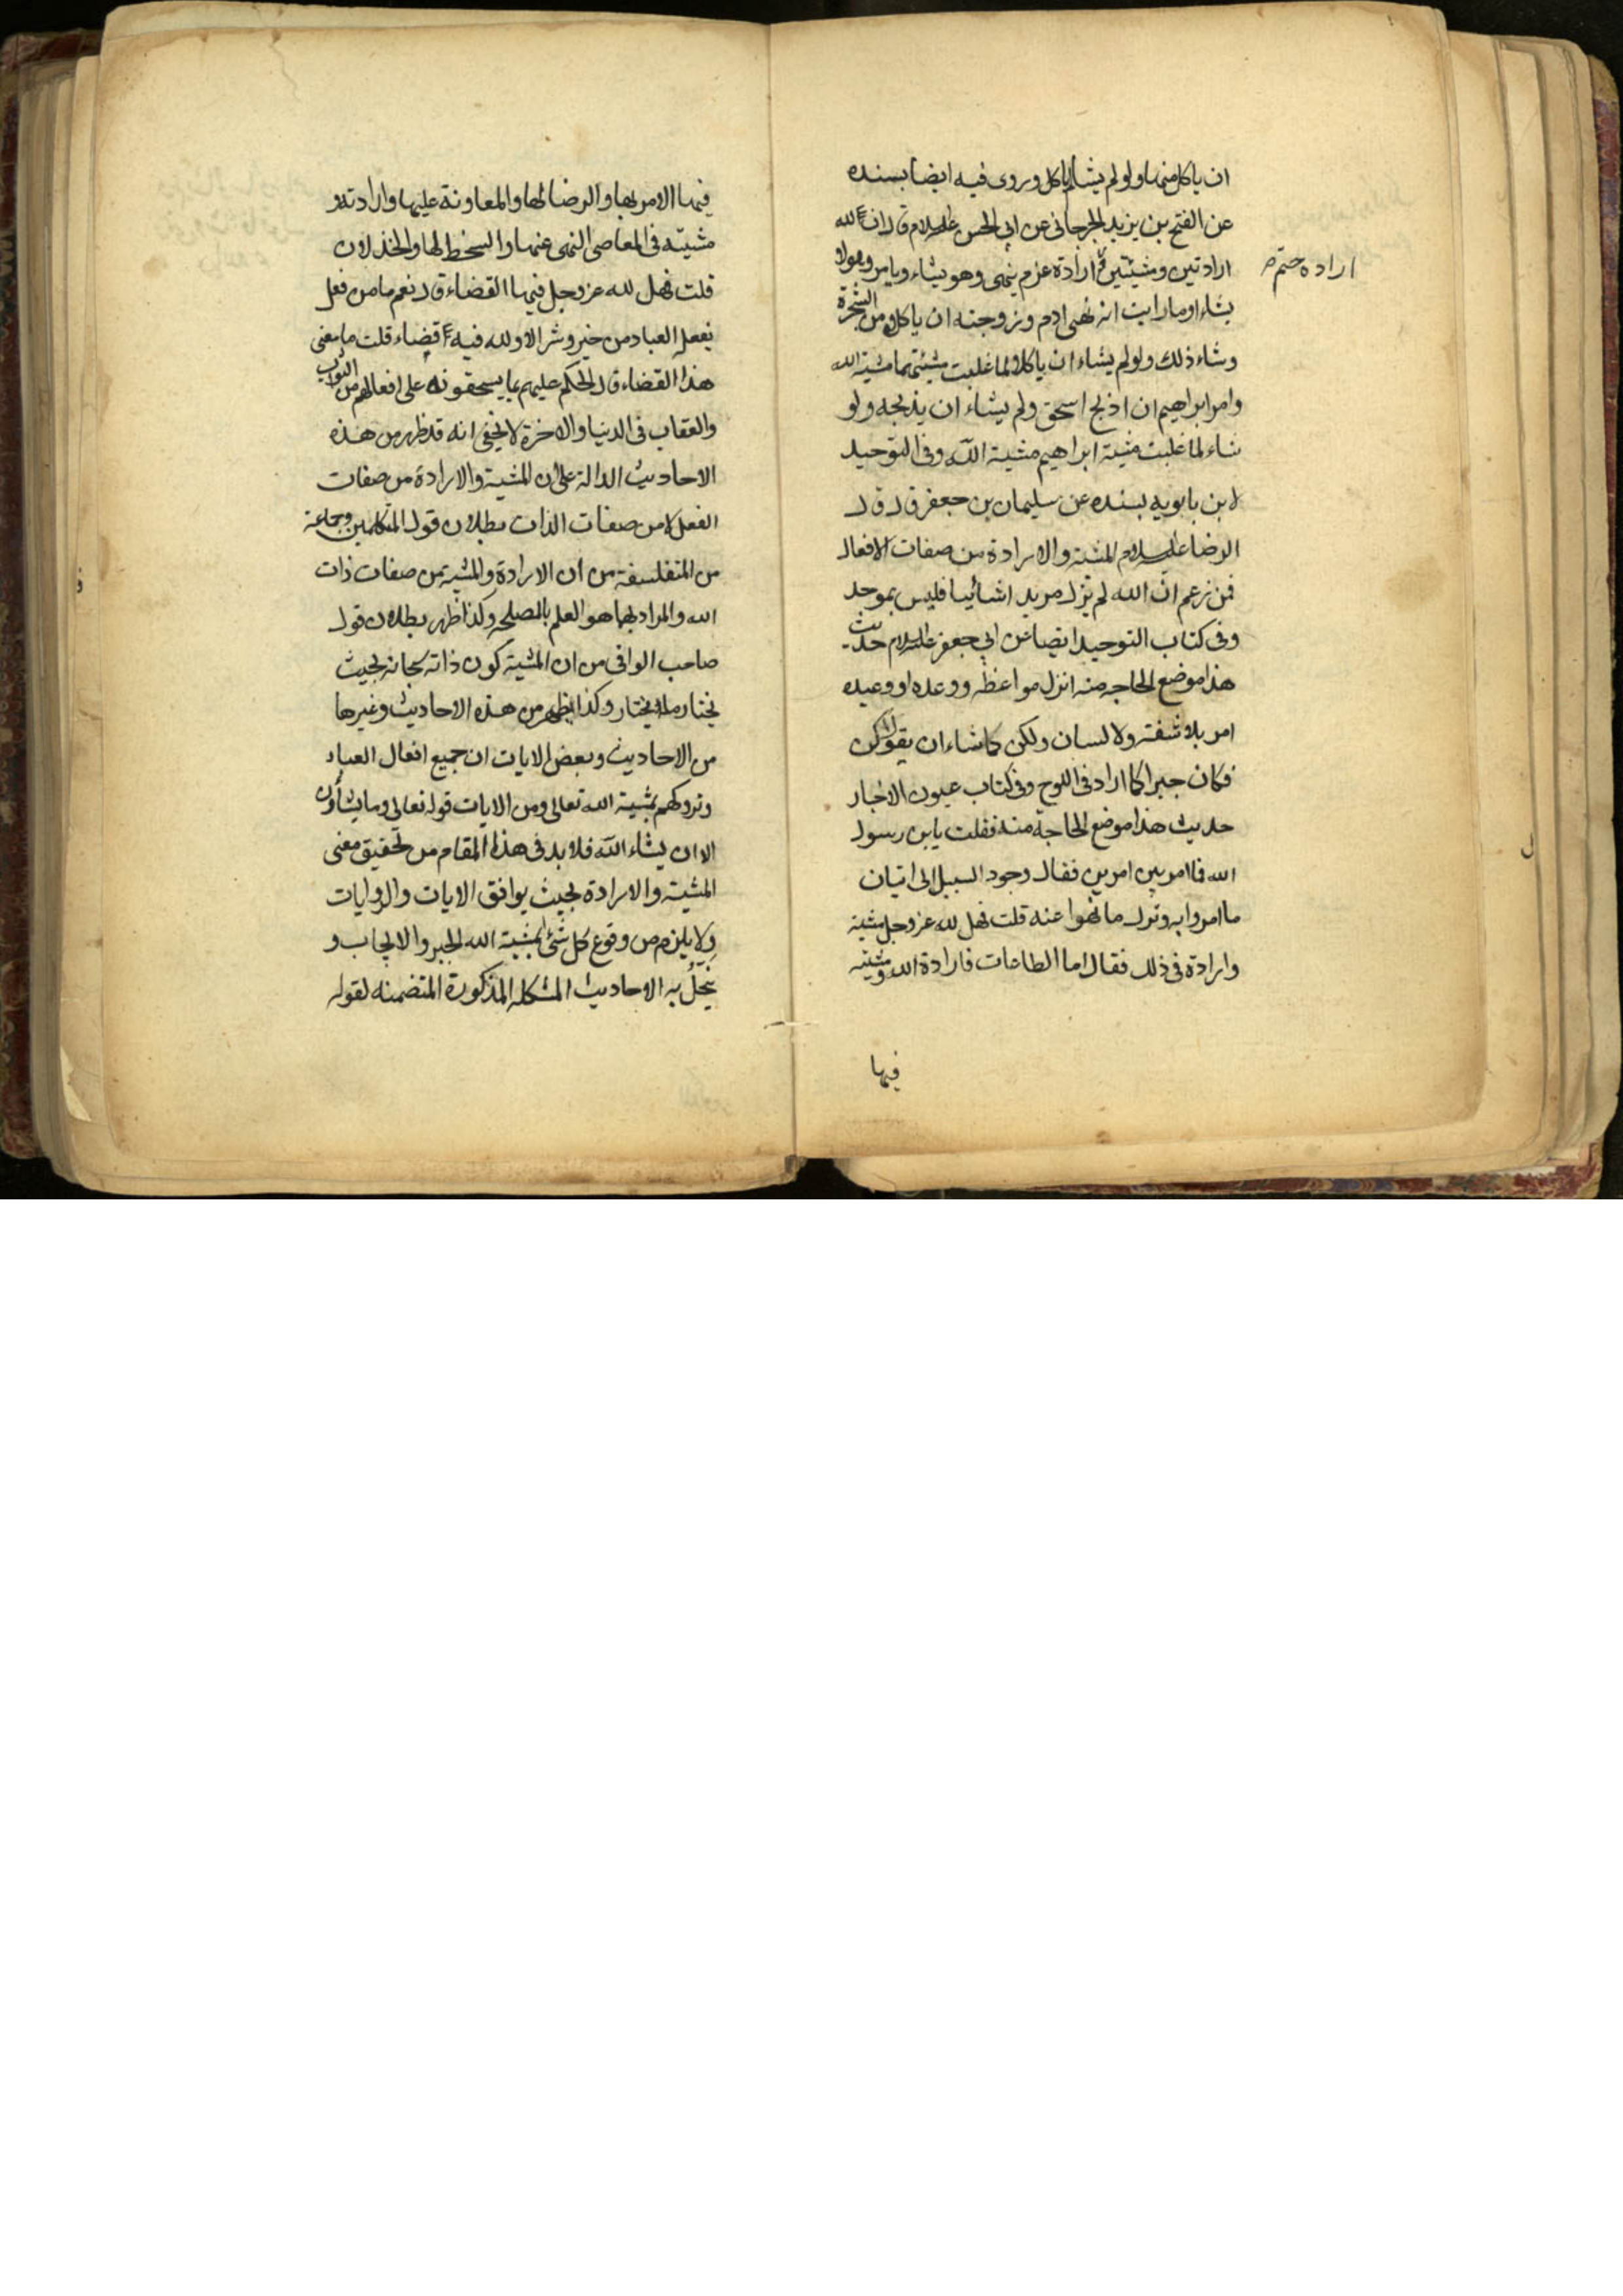 ان ياكل منها ولو لم يشا لم ياكل وروى فيه ايضا بسنده
عن الفتح بن يزيد الجرجانى عن ابى الحسن عليه السلام قال ان لله
ارادتين ومشيئتين ارادة عزم ينهى وهو يشاء ويامر وهو لا
ارادة حتم
يشاء اوما رايت انه نهى ادم وزوجته ان ياكلا من الشجرة
وشاء ذلك ولو لم يشاء ان ياكلا لما غلبت مشيئتهما مشية الله
وامر ابراهيم ان اذبح اسحق ولم يشاء ان يذبحه ولو
شاء لما غلبت مشية ابراهيم مشية الله وفى التوحيد
لابن بابويه بسنده عن سليمان بن جعفر قال قال
الرضا عليه السلام المشية والارادة من صفات الافعال
فمن زعم ان الله لم يزل مريد اشائيا فليس بموحد
وفى كتاب التوحيد ايضا عن ابى جعفر عليه السلام حديث
هذا موضع الحاجه منه انزل مواعظه ووعده او وعيده
امر بلا شفته ولا لسان ولكن كما شاء ان يقول كن
فكان جبرا كما اراد فى اللوح وفى كتاب عيون الاخبار
حديث هذا موضع الحاجة منه فقلت يابن رسول
الله فما امر بين امرين فقال وجود السبيل الى اتيان
ما امروا به وترك ما نهوا عنه قلت فهل لله عز وجل مشية
وارادة فى ذلك فقال اما الطاعات فارادة الله ومشيته
فيها
فيها الامر بها والرضا لها والمعاونة عليها وارادته و
مشيته فى المعاصى النهى عنها والسخط لها والخذلان
قلت فهل لله عز وجل فيها القضاء قال نعم ما من فعل
يفعله العباد من خير وشر الا ولله فيه قضاء قلت ما معنى
هذا القضاء قال الحكم عليهم بما يستحقونه على افعالهم من الثواب
والعقاب فى الدنيا والاخرة لا يخفى انه قد ظهر من هذه
الاحاديث الدالة على ان المشية والارادة من صفات
الفعل لا من صفات الذات بطلان قول المتكلمين وجماعة
من المتفلسفة من ان الارادة والمشية من صفات ذات
الله والمراد بهما هو العلم بالمصلحه وكذا ظهر بطلان قول
صاحب الوافى من ان المشية كون ذاته سبحانه بحيث
يختار ما يختار وكذا يظهر من هذه الاحاديث وغيرها
من الاحاديث وبعض الايات ان جميع افعال العباد
وتروكهم بمشية الله تعالى ومن الايات قوله تعالى وما يشاؤن
الا ان يشاء الله فلا بد فى هذا المقام من تحقيق معنى
المشية والارادة بحيث يوافق الايات والروايات
ولا يلزم من وقوع كل شئ بمشية الله الجبر والايجاب و
يحل به الاحاديث المشكله المذكورة المتضمنه لقوله